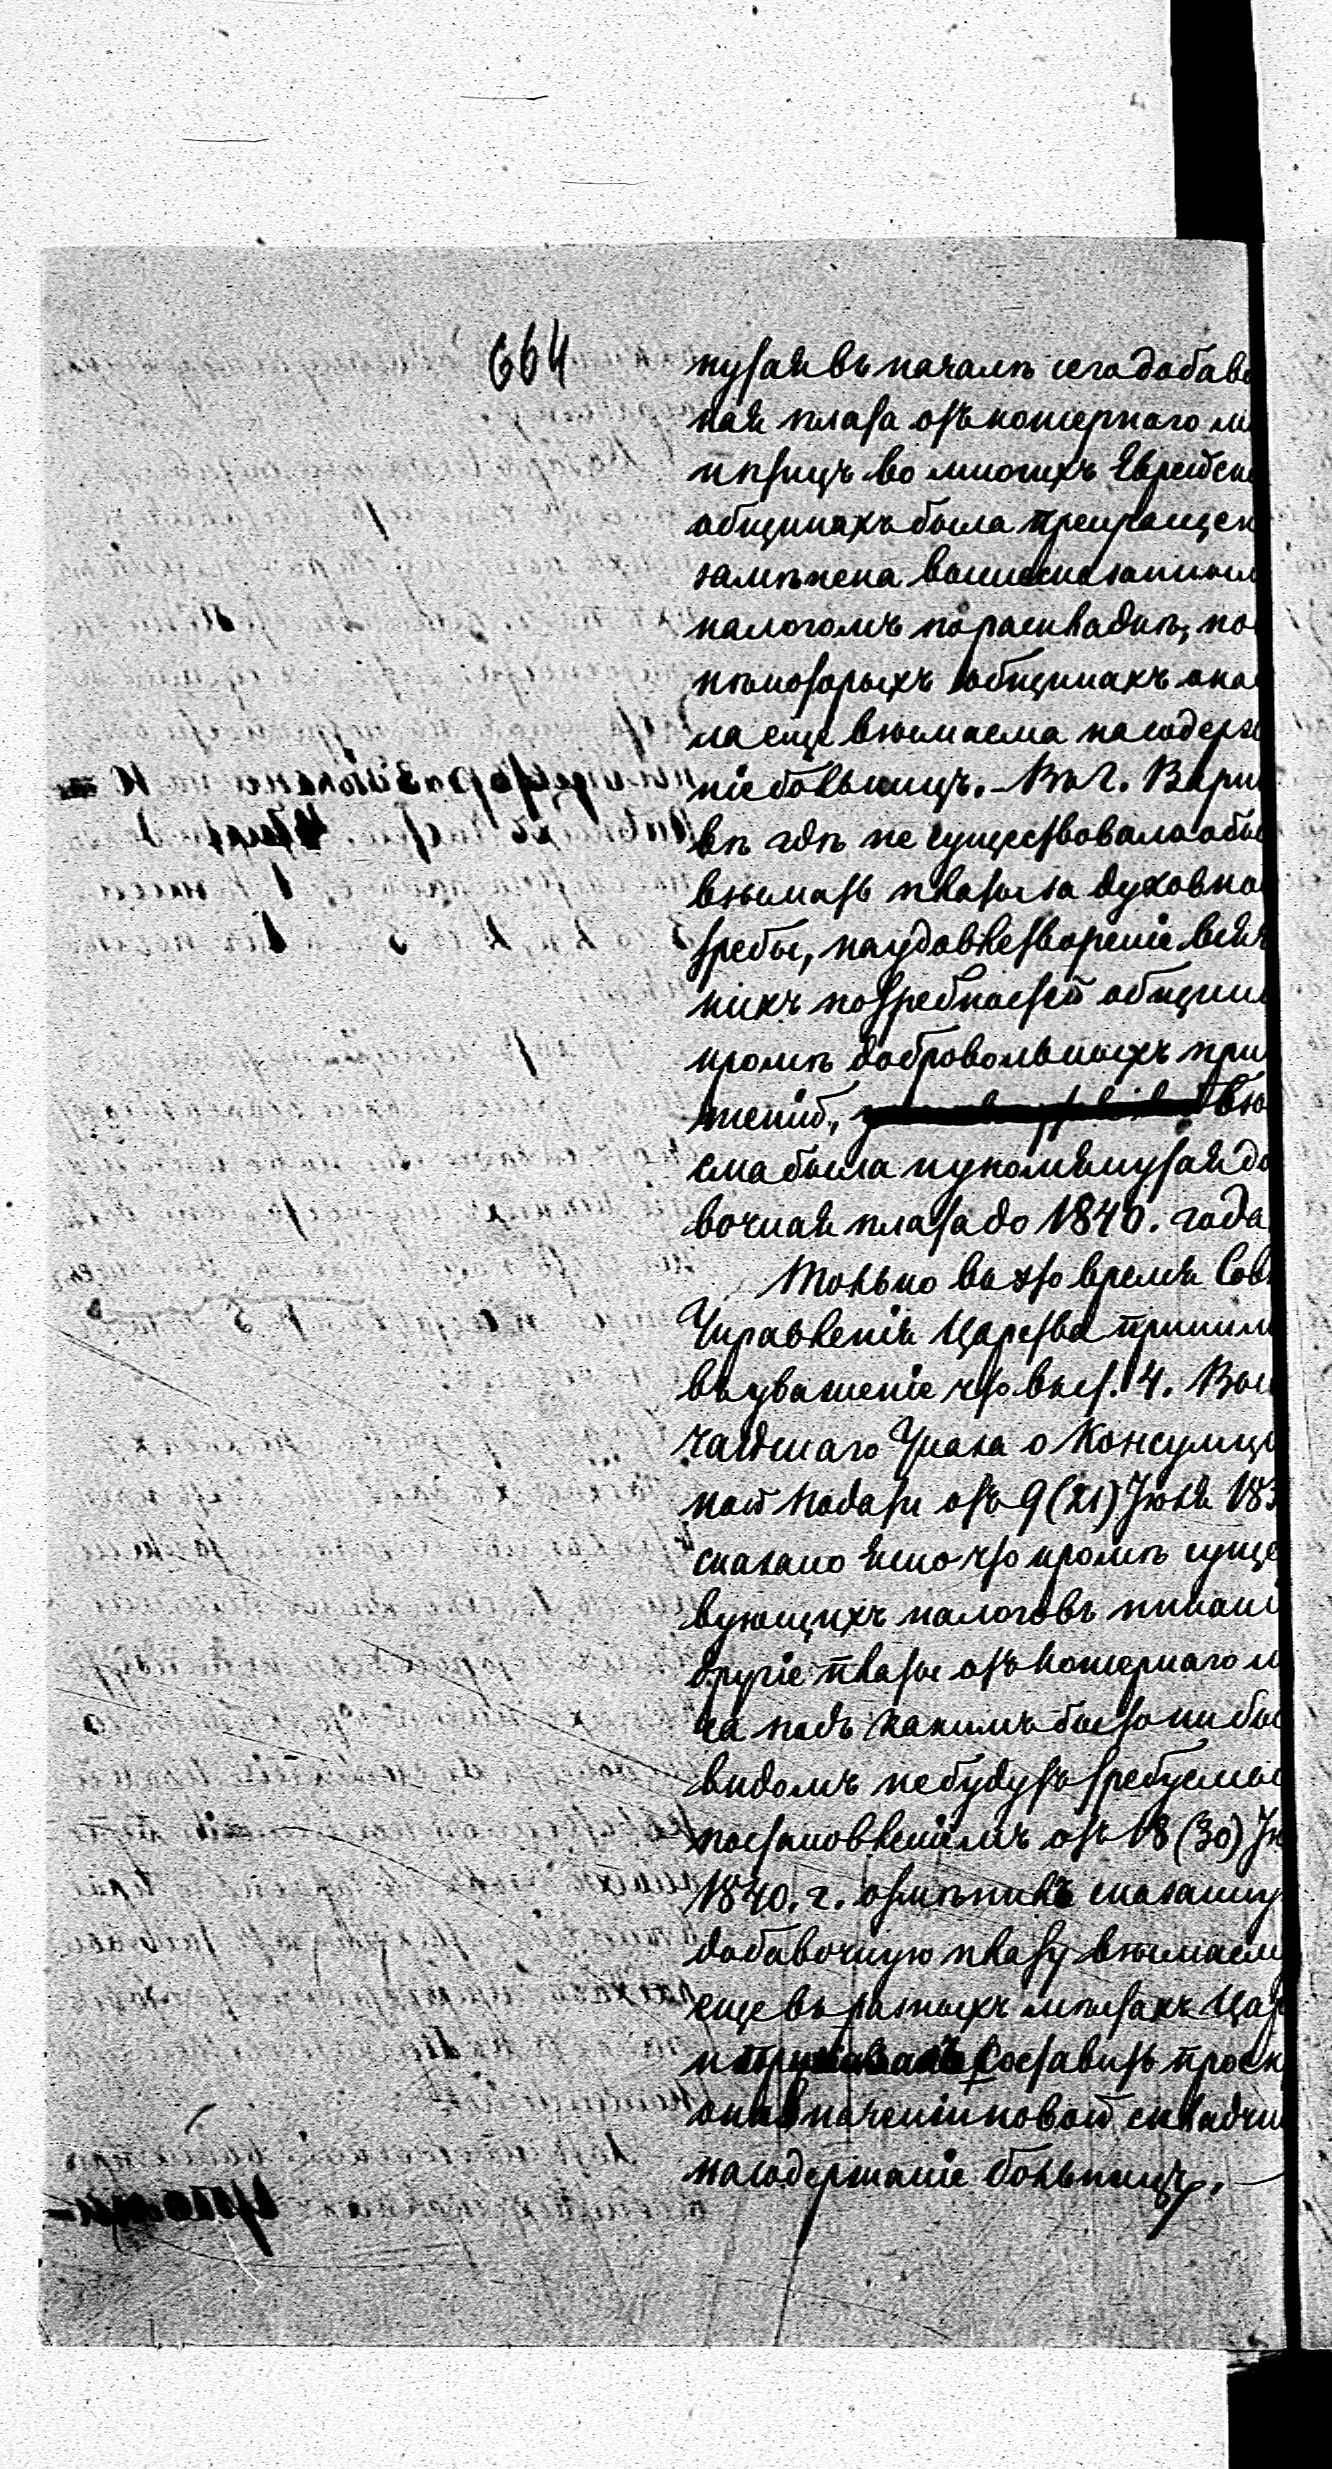 664
нутая въ началѣ сего добаво
ная плата отъ кошернаго мя
и птицъ во многихъ Еврейски
общинахъ была прекращен
замѣнена вышесказанным
налогомъ по раскладкѣ, но
нѣкоторыхъ общинахъ она
ла еще взымаема на содерж
ніе больницъ. – Въ г. Варша
вѣ гдѣ не существовало обы
взымать платы за духовно
требы, на удовлетвореніе всяч
никъ потребностей общин
кромѣ добровольныхъ при
шеній, взы
ема была и упомянутая до
вочная плата до 1840. года
Только въ это время Сов
Управленія Царства приним
въ уваженіе что въ ст. 4. Выс
чайшаго Указа о Консумці
ной подати отъ 9 (21) Іюля 183
сказано ясно что кромѣ суще
вующихъ налоговъ никакі
другіе платы отъ кошернаго м
са подъ какимъ бы то ни бы
видомъ не будутъ требуемы
постановленіемъ отъ 18 (30) Ію
1840. г. отмѣнилъ сказанну
добавочную плату взымаем
еще въ разныхъ мѣстахъ Цар
и приказалъ составить проэк
о назначеніи новой складчи
на содержаніе больницъ. –